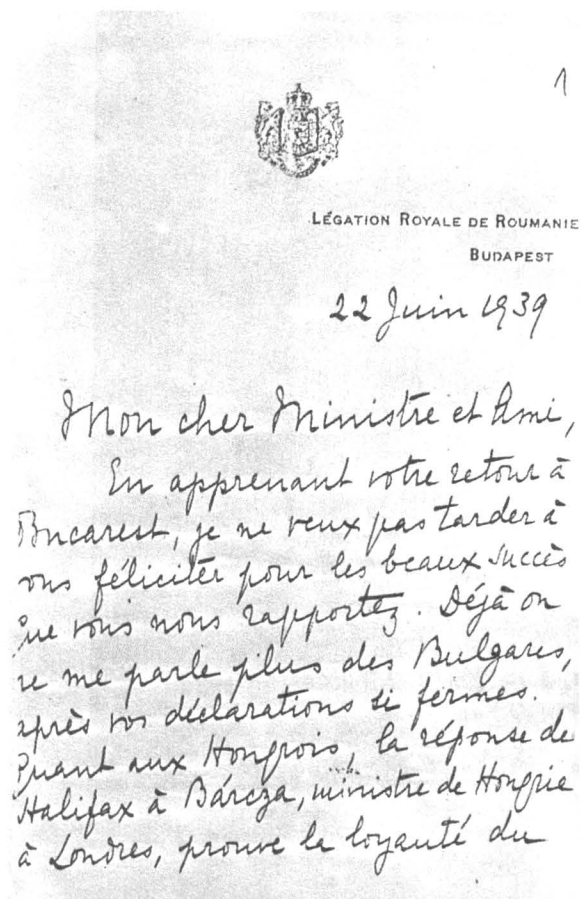 1
LÉGATION ROYALE DE ROUMANIE
BUDAPEST
22 Juin 1939
Mon cher Ministre et Ami,
En apprenant votre retour à
Bucarest, je ne veux pas tarder à
vous féliciter pour les beaux succès
que vous nous rapportez. Déjà on
ne me parle plus des Bulgares,
après vos déclarations si fermes.
Quant aux Hongrois, la réponse de
Halifax à Bárcza, ministre de Hongrie
à Londres, prouve la loyauté du